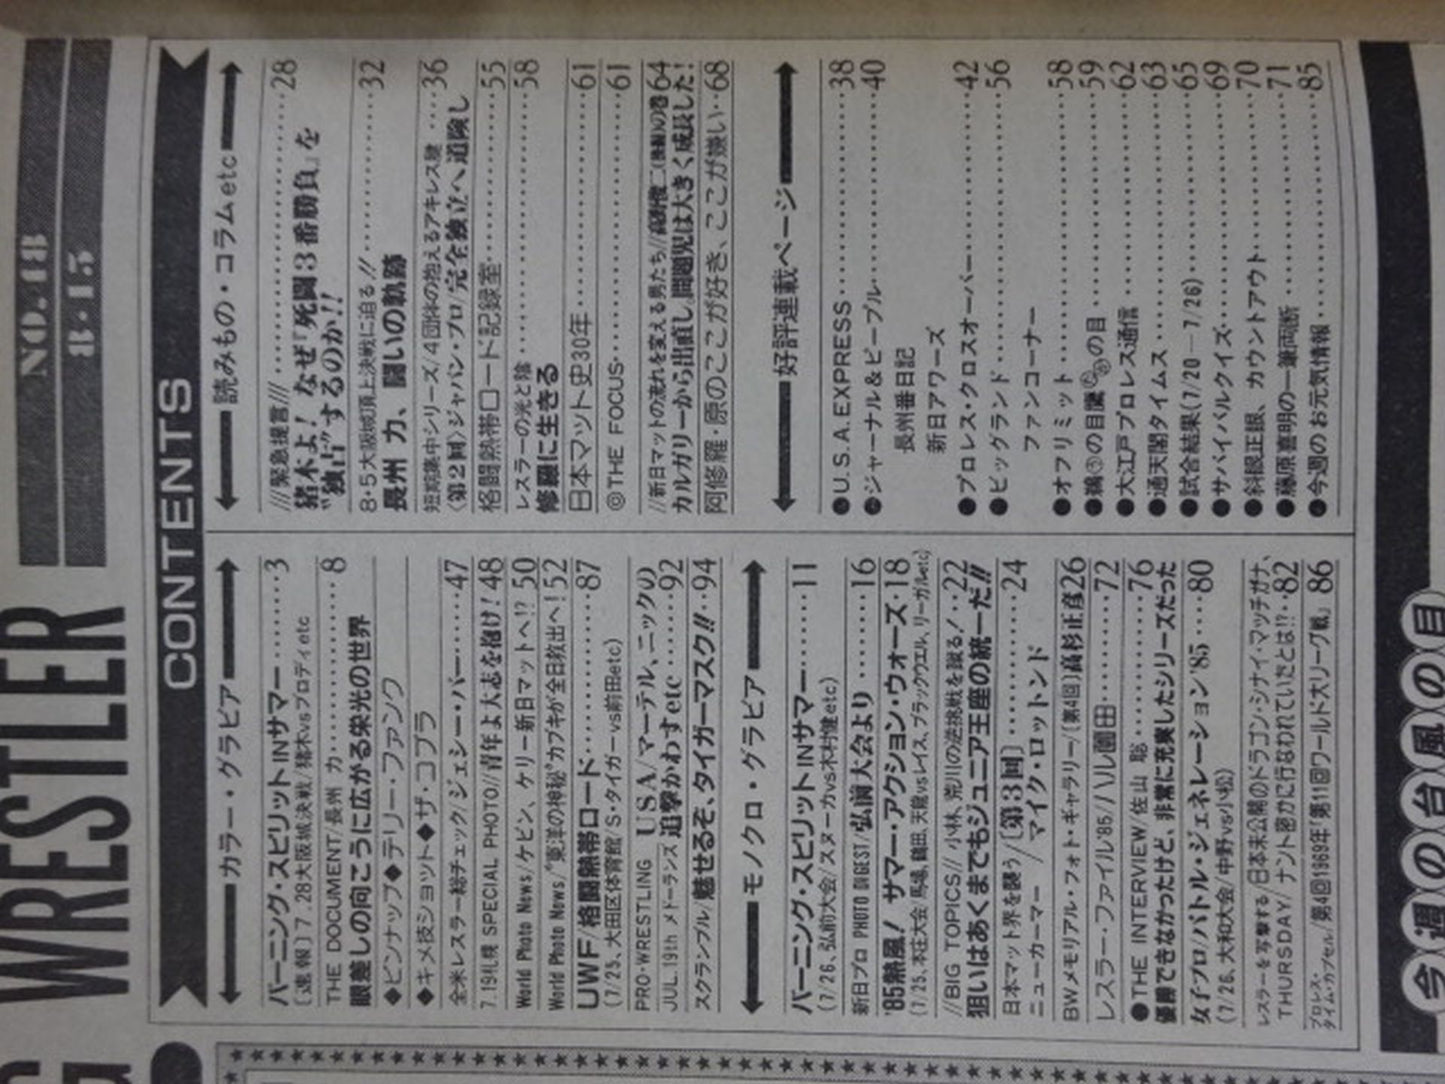 WRESTLER
NO.48
8·15
CONTENTS
カラー・グラビア
バーニング・スピリットINサマー……3
〔速報〕7.28大阪城決戦/猪木vsブロディetc
THE DOCUMENT/長州 力……8
眼差しの向こうに広がる栄光の世界
◆ピンナップ◆テリー・ファンク
◆キメ技ショット◆ザ・コブラ
全米レスラー総チェック/ジェシー・バー……47
7.19札幌 SPECIAL PHOTO//青年よ大志を抱け!48
World Photo News/ケビン、ケリー新日マットへ!?50
World Photo News/“東洋の神秘”カブキが全日救出へ!52
UWF/格闘熱帯ロード……87
(7/25、大田区体育館/S・タイガーvs前田etc)
PRO-WRESTLING USA/マーテル、ニックの
JUL.19th メドーランズ 追撃かわすetc……92
スクランブル/魅せるぞ、タイガーマスク!!…94
モノクロ・グラビア
バーニング・スピリットINサマー……11
(7/26、弘前大会/スヌーカvs木村健etc)
新日プロ PHOTO DIGEST/弘前大会より……16
'85熱風! サマー・アクション・ウォーズ…18
(7/25、本庄大会/馬場、鶴田、天龍vsレイス、ブラックウエル、リーガルetc)
//BIG TOPICS// 小林、荒川の逆挑戦を蹴る!…22
狙いはあくまでもジュニア王座の統一だ!!
日本マット界を襲う/〔第3回〕……24
ニューカーマー/マイク・ロットンド
BWメモリアル・フォト・ギャラリー/〔第4回〕高杉正彦26
レスラー・ファイル'85/ハル薗田……72
●THE INTERVIEW/佐山 聡……76
優勝できなかったけど、非常に充実したシリーズだった
女子プロ/バトル・ジェネレーション'85…80
(7/26、大和大会/中野vs小松)
レスラーを写撃する/日本未公開のドラゴン・シナイ・マッチガナ、
THURSDAY/ナント密かに行なわれていたとは!?…82
プロレス・タイム・カプセル/第4回1969年『第11回ワールド大リーグ戦』86
読みもの・コラムetc
///緊急提言///……28
猪木よ! なぜ『死闘3番勝負』を
“独占”するのか!!
8・5大阪城頂上決戦に迫る!!……32
長州 力、闘いの軌跡
短期集中シリーズ/4団体の抱えるアキレス腱…36
〈第2回〉ジャパン・プロ/完全独立へ道険し
格闘熱帯ロード記録室……55
レスラーの光と陰……58
修羅に生きる
日本マット史30年……61
◎THE FOCUS……61
//新日マットの流れを変える男たち//高野俊二(後編)の巻64
カルガリーから出直し、問題児は大きく成長した!
阿修羅・原のここが好き、ここが嫌い…68
好評連載ページ
●U.S.A.EXPRESS……38
●ジャーナル&ピープル……40
長州番日記
新日アワーズ
●プロレス・クロスオーバー……42
●ビッグランド……56
ファンコーナー
●オフリミット……58
●鵜の目鷹の目……59
●大江戸プロレス通信……62
●通天閣タイムス……63
●試合結果(7/20―7/26)……65
●サバイバルクイズ……69
●斜眼正眼、カウントアウト……70
●藤原喜明の一筆両断……71
●今週のお元気情報……85
今週の台風の目